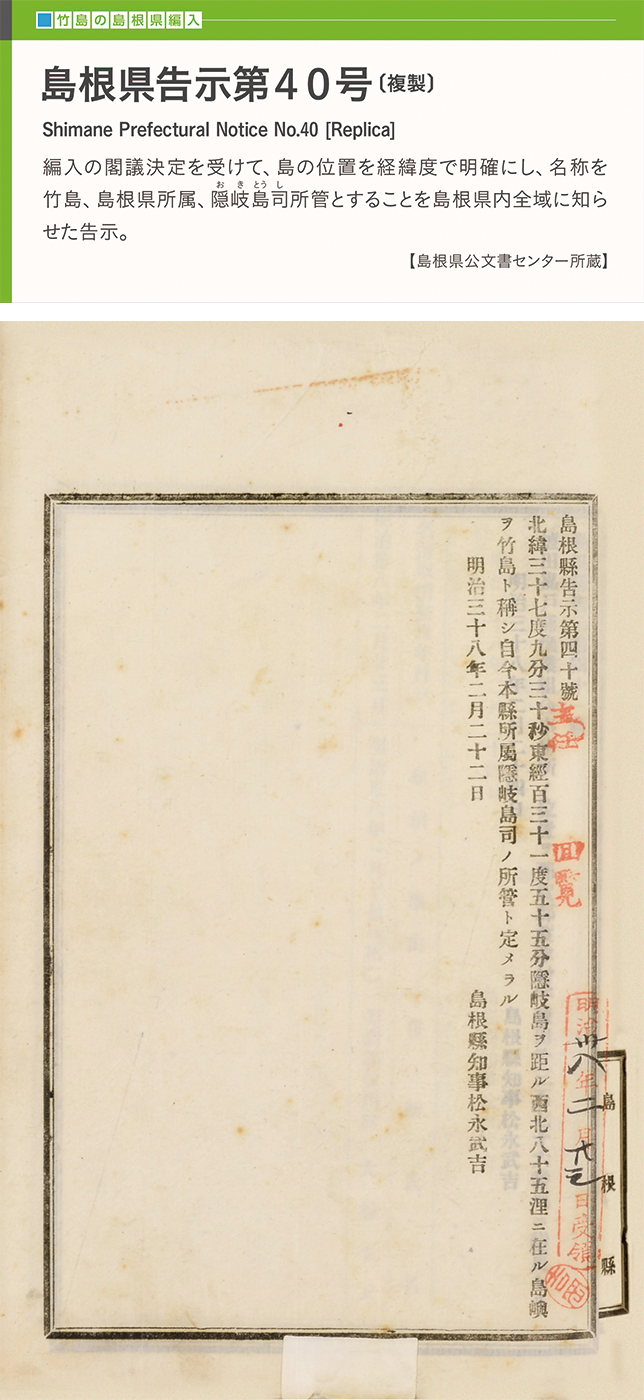 竹島の島根県編入
島根県告示第40号〔複製〕
Shimane Prefectural Notice No.40 [Replica]
編入の閣議決定を受けて、島の位置を経緯度で明確にし、名称を
竹島、島根県所属、隠岐島司所管とすることを島根県内全域に知ら
おきとうし
せた告示。
【島根県公文書センター所蔵】
島根縣告示第四十號
主任
回覧
北緯三十七度九分三十秒東經百三十一度五十五分隱岐島ヲ距ル西北八十五浬ニ在ル島嶼
ヲ竹島ト稱シ自今本縣所屬隱岐島司ノ所管ト定メラル
明治三十八年二月二十二日
島根縣知事松永武吉
明治卅八年二月廿三日受領
島根縣